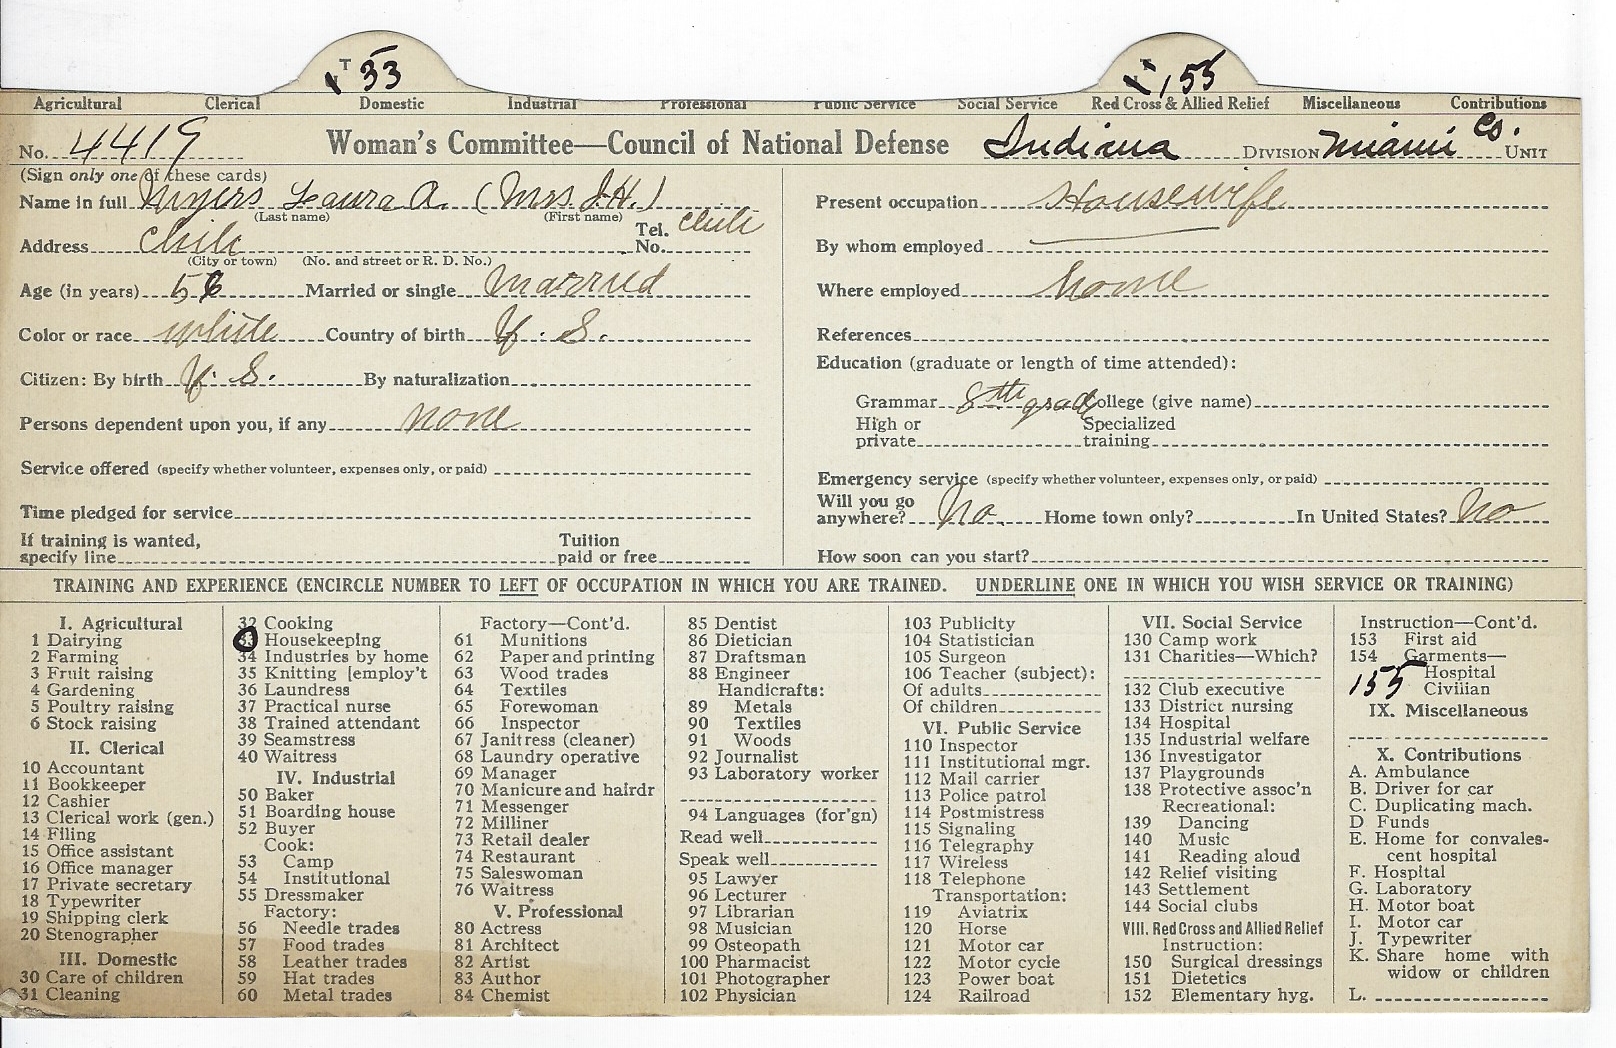 T 33
T 155
Agricultural Clerical Domestic Industrial Professional Public Service Social Service Red Cross & Allied Relief Miscellaneous Contributions
No. 4419 Woman's Committee—Council of National Defense Indiana DIVISION Miami Co. UNIT
(Sign only one of these cards)
Name in full Myers Laura A. (Mrs J.H.)
(Last name) (First name)
Address Chili Tel. No. Chili
(City or town) (No. and street or R. D. No.)
Age (in years) 56 Married or single Married
Color or race white Country of birth U. S.
Citizen: By birth U. S. By naturalization
Persons dependent upon you, if any none
Service offered (specify whether volunteer, expenses only, or paid)
Time pledged for service
If training is wanted, specify line Tuition paid or free
Present occupation Housewife
By whom employed
Where employed home
References
Education (graduate or length of time attended):
Grammar 8th grade College (give name)
High or private Specialized training
Emergency service (specify whether volunteer, expenses only, or paid)
Will you go anywhere? No. Home town only? In United States? No
How soon can you start?
TRAINING AND EXPERIENCE (ENCIRCLE NUMBER TO LEFT OF OCCUPATION IN WHICH YOU ARE TRAINED. UNDERLINE ONE IN WHICH YOU WISH SERVICE OR TRAINING)
I. Agricultural
1 Dairying
2 Farming
3 Fruit raising
4 Gardening
5 Poultry raising
6 Stock raising
II. Clerical
10 Accountant
11 Bookkeeper
12 Cashier
13 Clerical work (gen.)
14 Filing
15 Office assistant
16 Office manager
17 Private secretary
18 Typewriter
19 Shipping clerk
20 Stenographer
III. Domestic
30 Care of children
31 Cleaning
32 Cooking
33 Housekeeping
34 Industries by home
35 Knitting [employ't
36 Laundress
37 Practical nurse
38 Trained attendant
39 Seamstress
40 Waitress
IV. Industrial
50 Baker
51 Boarding house
52 Buyer
Cook:
53 Camp
54 Institutional
55 Dressmaker
Factory:
56 Needle trades
57 Food trades
58 Leather trades
59 Hat trades
60 Metal trades
Factory—Cont'd.
61 Munitions
62 Paper and printing
63 Wood trades
64 Textiles
65 Forewoman
66 Inspector
67 Janitress (cleaner)
68 Laundry operative
69 Manager
70 Manicure and hairdr
71 Messenger
72 Milliner
73 Retail dealer
74 Restaurant
75 Saleswoman
76 Waitress
V. Professional
80 Actress
81 Architect
82 Artist
83 Author
84 Chemist
85 Dentist
86 Dietician
87 Draftsman
88 Engineer
Handicrafts:
89 Metals
90 Textiles
91 Woods
92 Journalist
93 Laboratory worker
94 Languages (for'gn)
Read well
Speak well
95 Lawyer
96 Lecturer
97 Librarian
98 Musician
99 Osteopath
100 Pharmacist
101 Photographer
102 Physician
103 Publicity
104 Statistician
105 Surgeon
106 Teacher (subject):
Of adults
Of children
VI. Public Service
110 Inspector
111 Institutional mgr.
112 Mail carrier
113 Police patrol
114 Postmistress
115 Signaling
116 Telegraphy
117 Wireless
118 Telephone
Transportation:
119 Aviatrix
120 Horse
121 Motor car
122 Motor cycle
123 Power boat
124 Railroad
VII. Social Service
130 Camp work
131 Charities—Which?
132 Club executive
133 District nursing
134 Hospital
135 Industrial welfare
136 Investigator
137 Playgrounds
138 Protective assoc'n
Recreational:
139 Dancing
140 Music
141 Reading aloud
142 Relief visiting
143 Settlement
144 Social clubs
VIII. Red Cross and Allied Relief
Instruction:
150 Surgical dressings
151 Dietetics
152 Elementary hyg.
Instruction—Cont'd.
153 First aid
154 Garments—
Hospital
155 Civilian
IX. Miscellaneous
X. Contributions
A. Ambulance
B. Driver for car
C. Duplicating mach.
D Funds
E. Home for convales-
cent hospital
F. Hospital
G. Laboratory
H. Motor boat
I. Motor car
J. Typewriter
K. Share home with
widow or children
L.